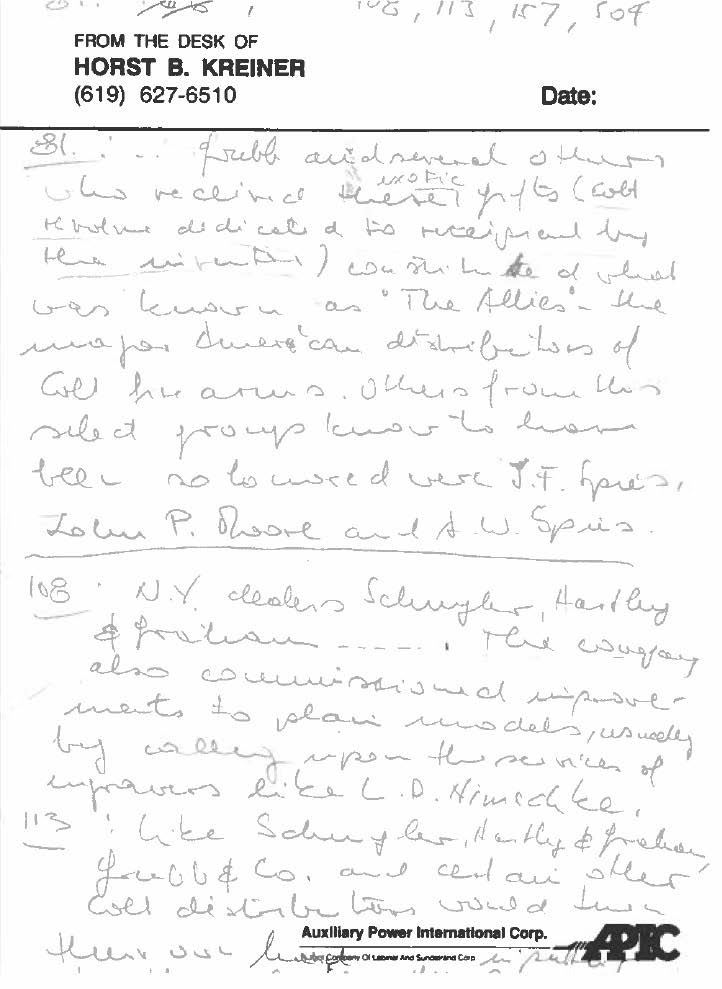 81, 108, 113, 157, 504
FROM THE DESK OF
HORST B. KREINER
(619) 627-6510
Date:
81. : .. Grubb and several others
who received these exotic gifts (Colt
revolver dedicated to recipient by
the inventor) constituted what
was known as "The Allies" - the
major American distributors of
Colt firearms. Others from this
select group know to have
been so honored were J.F. Spies,
John P. Moore and A.W. Spies.
108 : N.Y. dealers Schuyler, Hartley
& Graham ----- . The company
also commissioned improve-
ments to plain models, usually
by calling upon the services of
engravers like L.D. Nimschke.
113 : Like Schuyler, Hartley & Graham,
Grubb & Co. and certain other
Colt distributors would
their own
Auxiliary Power International Corp.
APIC
Company Of Labinal And Sundstrand Corp